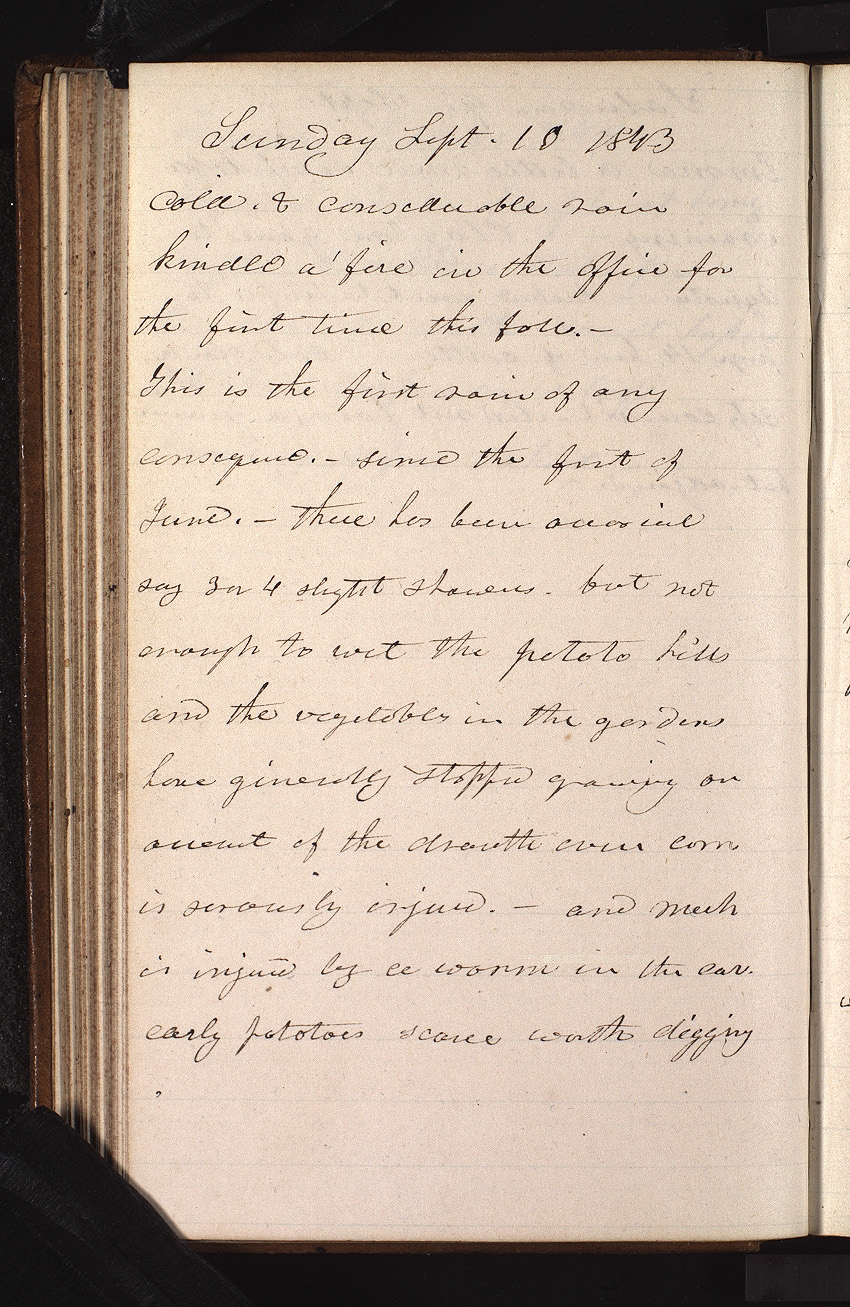 Sunday Sept. 10 1843
Cold. & considerable rain
kindled a fire in the office for
the first time this fall. –
This is the first rain of any
consequence. – since the first of
June. – there has been
say 3 or 4 slight showers. but not
enough to wet the potato hills
and the vegetables in the gardens
have generally stopped growing on
account of the drouth even corn
is seriously injured. – and much
is injured by a worm in the ear.
early potatoes scarce worth digging